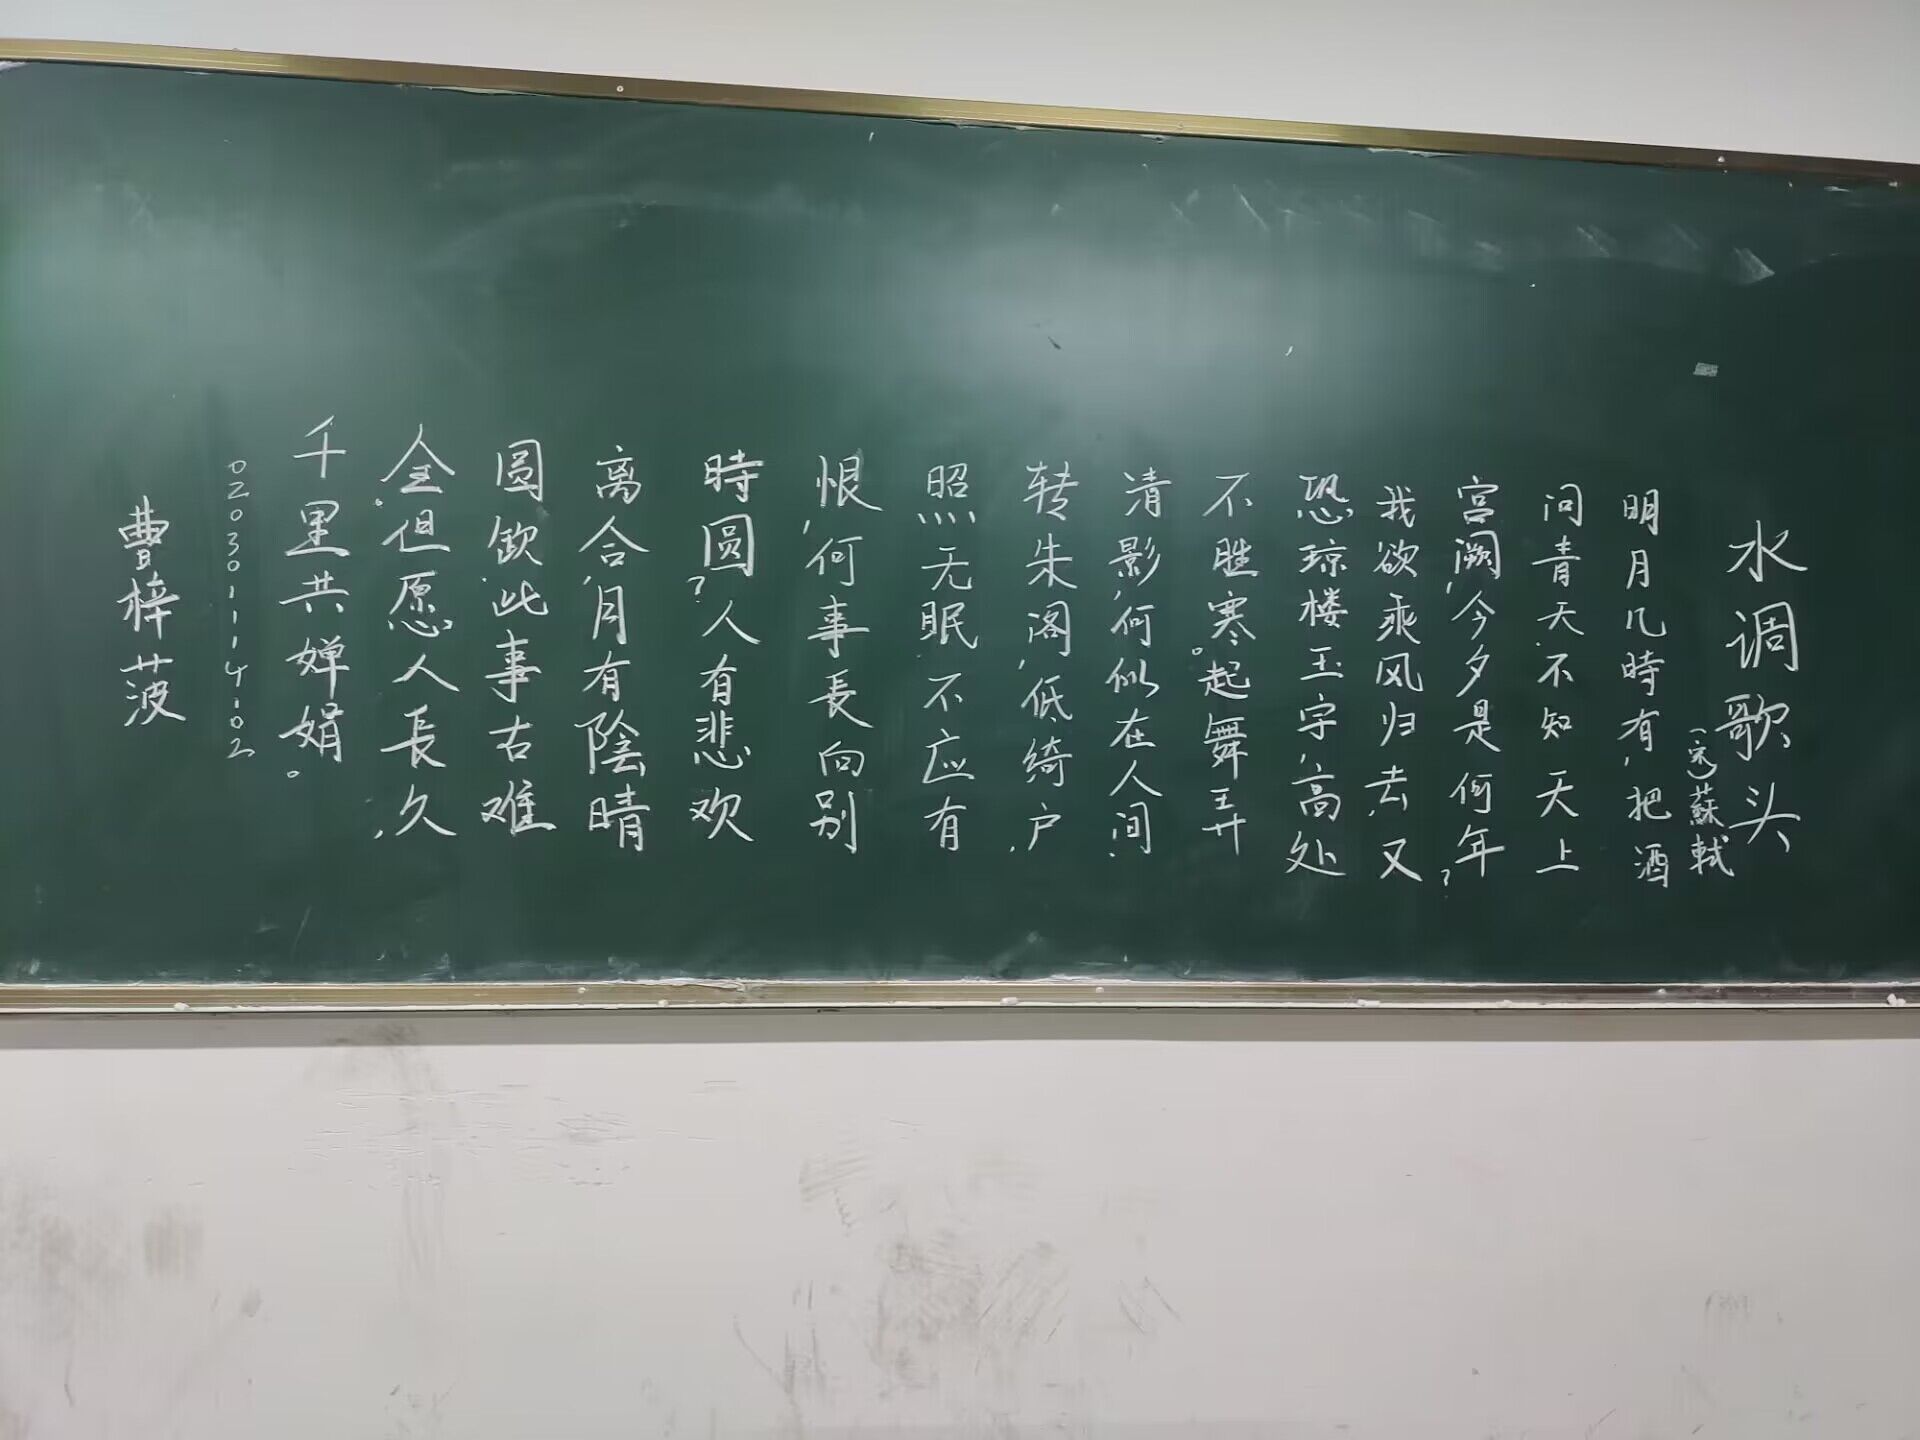 水调歌头
(宋)蘇軾
明月几時有,把酒
问青天.不知天上
宫阙,今夕是何年?
我欲乘风归去,又
恐琼楼玉宇,高处
不胜寒。起舞弄
清影,何似在人间.
转朱阁,低绮户,
照无眠.不应有
恨,何事長向别
時圆?人有悲欢
离合,月有陰晴
圆欽,此事古难
全。但愿人長久,
千里共婵娟。
020301114102
曹梓菠